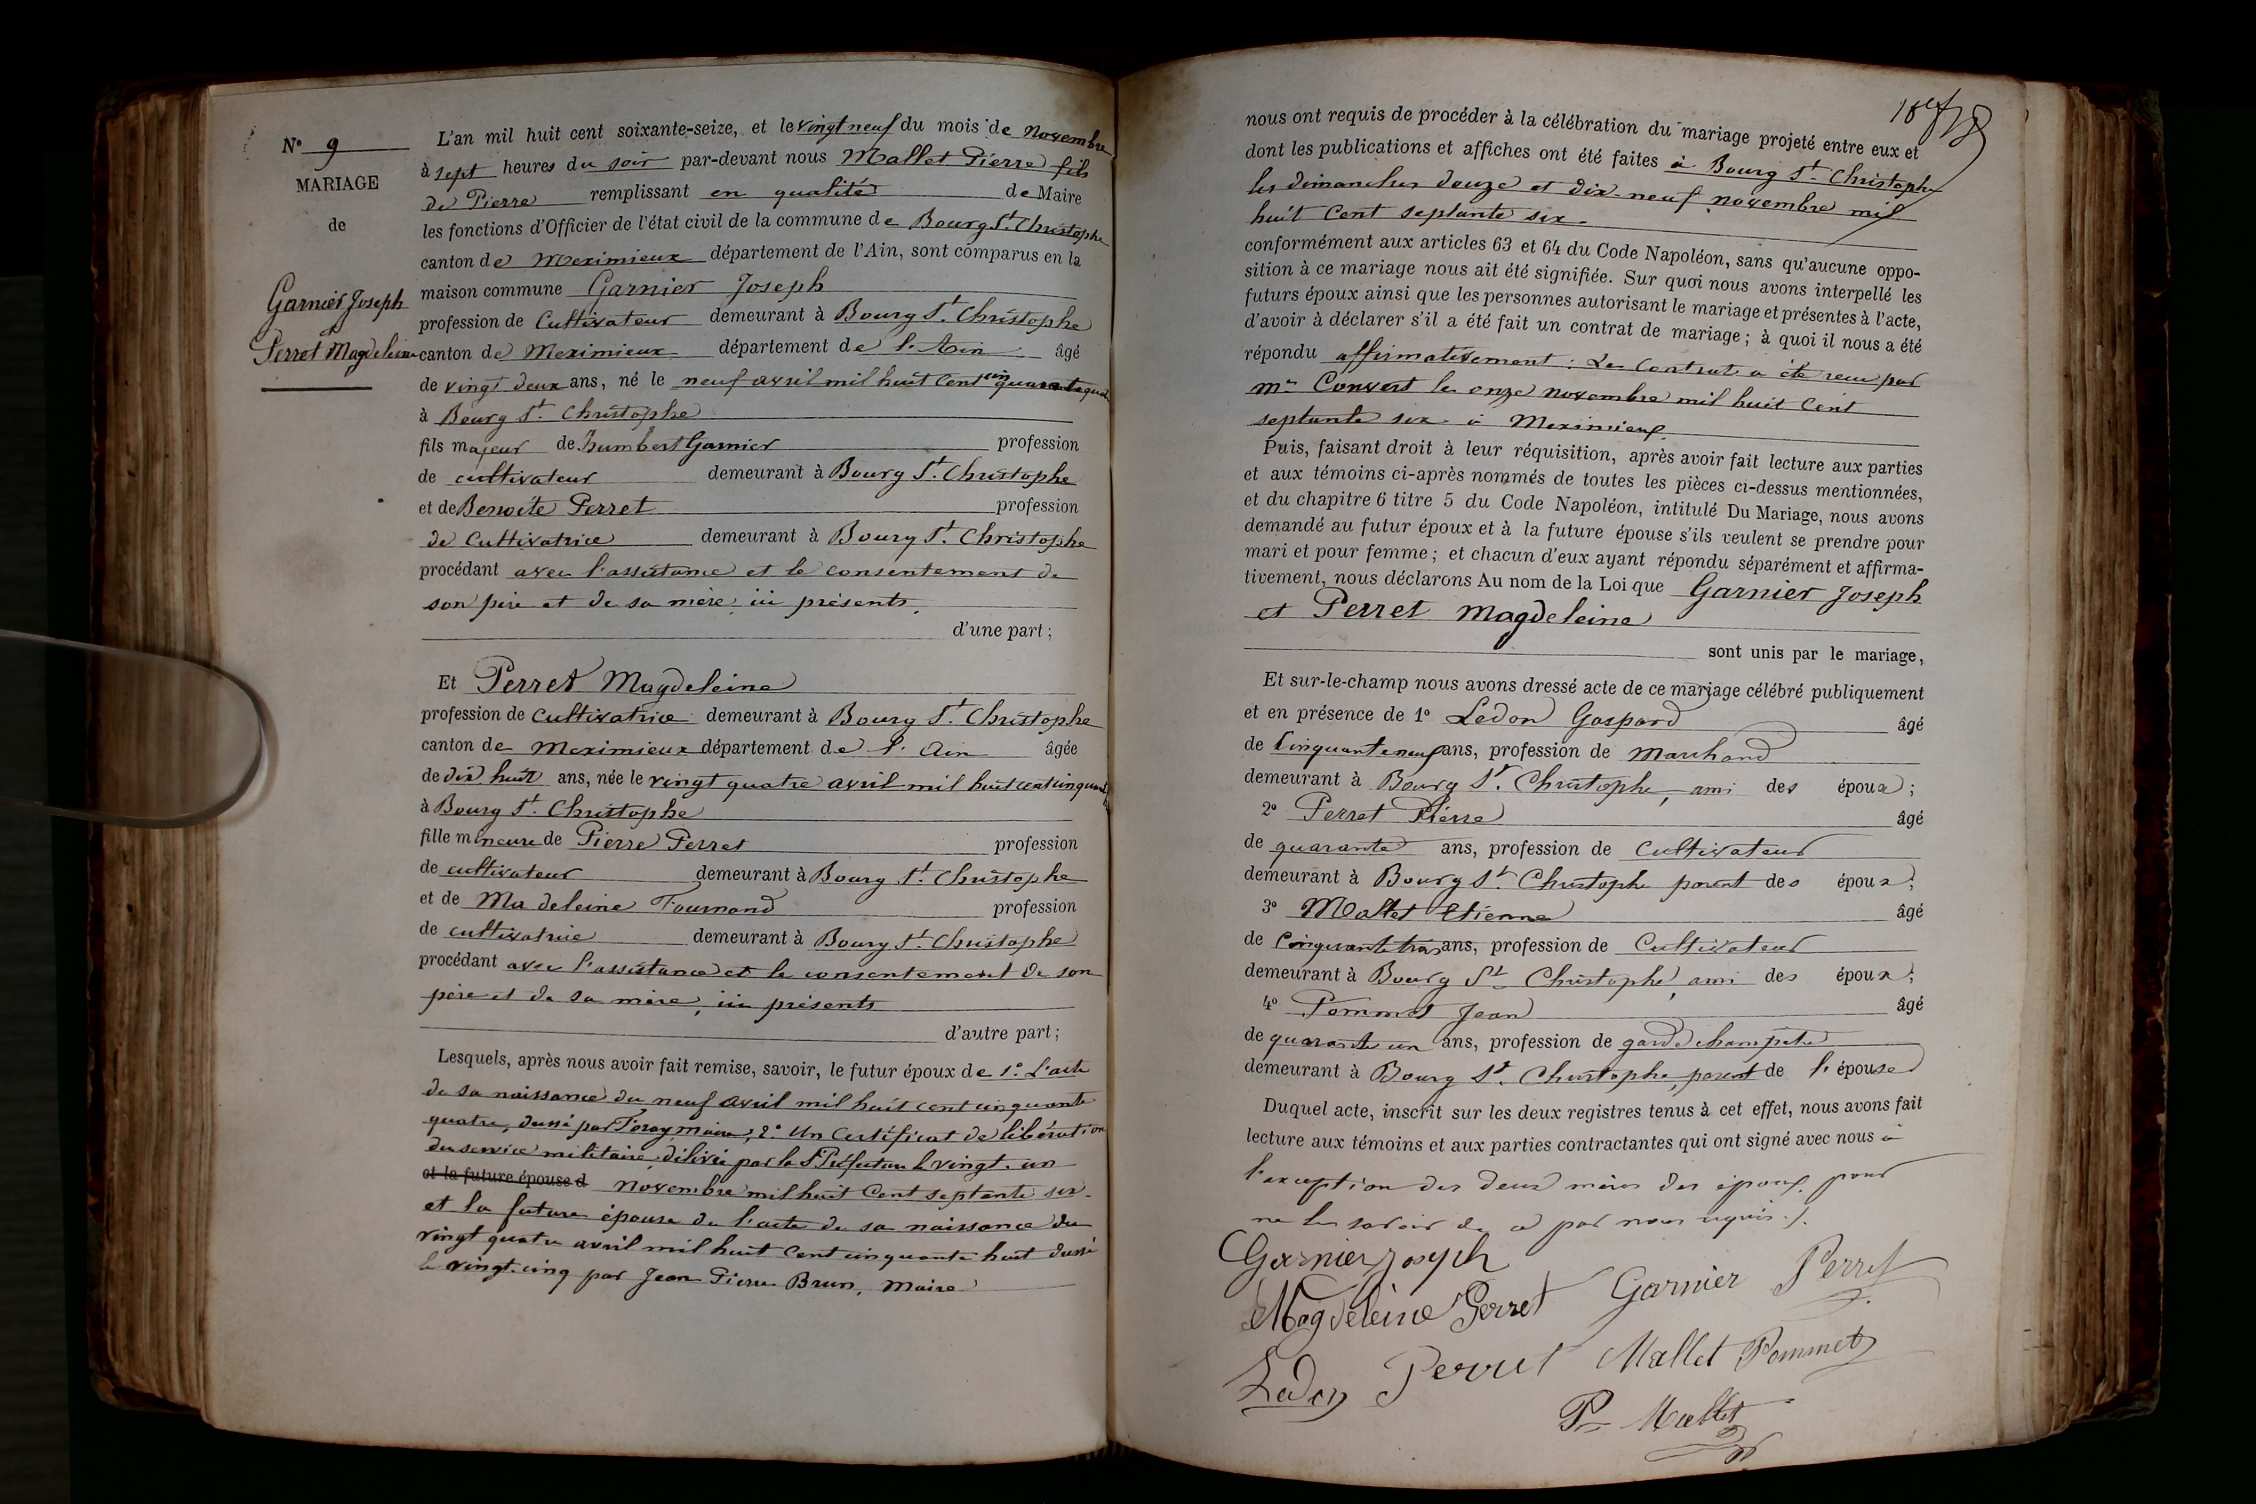 N° 9
MARIAGE
de
Garnier Joseph
Perret Magdeleine
L'an mil huit cent soixante-seize, et le vingt neuf du mois de Novembre
à sept heures du soir par-devant nous Mallet Pierre fils
de Pierre remplissant en qualité de Maire
les fonctions d'Officier de l'état civil de la commune de Bourg St. Christophe
canton de Meximieux département de l'Ain, sont comparus en la
maison commune Garnier Joseph
profession de Cultivateur demeurant à Bourg St. Christophe
canton de Meximieux département de l'Ain âgé
de vingt deux ans, né le neuf avril mil huit cent
à Bourg St. Christophe
fils majeur de humbert Garnier profession
de cultivateur demeurant à Bourg St. Christophe
et de Benoite Perret profession
de Cultivatrice demeurant à Bourg St. Christophe
procédant avec l'assistance et le consentement de
son père et de sa mère, ici présents,
d'une part;
Et Perret Magdeleine
profession de cultivatrice demeurant à Bourg St. Christophe
canton de Meximieux département de l'Ain âgée
de dix huit ans, née le vingt quatre avril mil huit cent
à Bourg St. Christophe
fille mineure de Pierre Perret profession
de cultivateur demeurant à Bourg St. Christophe
et de Madeleine profession
de cultivatrice demeurant à Bourg St. Christophe
procédant avec l'assistance et le consentement de son
père et de sa mère, ici présents
d'autre part;
Lesquels, après nous avoir fait remise, savoir, le futur époux de 1° L'acte
de sa naissance du neuf avril mil huit cent cinquante
quatre, dressé par Maire; 2° Un certificat de libération
du service militaire, délivré par le S. Préfecture le vingt-un
et la future épouse d novembre mil huit cent septante six -
et la future épouse de l'acte de sa naissance du
vingt quatre avril mil huit cent cinquante huit dressé
le vingt-cinq par Jean Pierre Brun, Maire
nous ont requis de procéder à la célébration du mariage projeté entre eux et
dont les publications et affiches ont été faites à Bourg St. Christophe
les dimanches douze et dix-neuf novembre mil
huit cent septante six.
conformément aux articles 63 et 64 du Code Napoléon, sans qu'aucune oppo-
sition à ce mariage nous ait été signifiée. Sur quoi nous avons interpellé les
futurs époux ainsi que les personnes autorisant le mariage et présentes à l'acte,
d'avoir à déclarer s'il a été fait un contrat de mariage; à quoi il nous a été
répondu affirmativement: Le Contrat a été reçu par
Me Convert le onze novembre mil huit cent
septante six à Meximieux
Puis, faisant droit à leur réquisition, après avoir fait lecture aux parties
et aux témoins ci-après nommés de toutes les pièces ci-dessus mentionnées,
et du chapitre 6 titre 5 du Code Napoléon, intitulé Du Mariage, nous avons
demandé au futur époux et à la future épouse s'ils veulent se prendre pour
mari et pour femme; et chacun d'eux ayant répondu séparément et affirma-
tivement, nous déclarons Au nom de la Loi que Garnier Joseph
et Perret Magdeleine
sont unis par le mariage,
Et sur-le-champ nous avons dressé acte de ce mariage célébré publiquement
et en présence de 1° Ledon Gaspard âgé
de Cinquante neuf ans, profession de Marchand
demeurant à Bourg St. Christophe, ami des époux;
2° Perret Pierre âgé
de quarante ans, profession de Cultivateur
demeurant à Bourg St. Christophe parent des époux;
3° Mallet Etienne âgé
de Cinquante trois ans, profession de Cultivateur
demeurant à Bourg St. Christophe, ami des époux;
4° Pommet Jean âgé
de quarante un ans, profession de garde champêtre
demeurant à Bourg St. Christophe, parent de l'épouse
Duquel acte, inscrit sur les deux registres tenus à cet effet, nous avons fait
lecture aux témoins et aux parties contractantes qui ont signé avec nous à
l'exception des deux mères des époux, pour
ne le savoir de ce par nous requis.
Garnier Joseph
Magdeleine Perret Garnier Perret
Ledon Perret Mallet Pommet
Pre Mallet